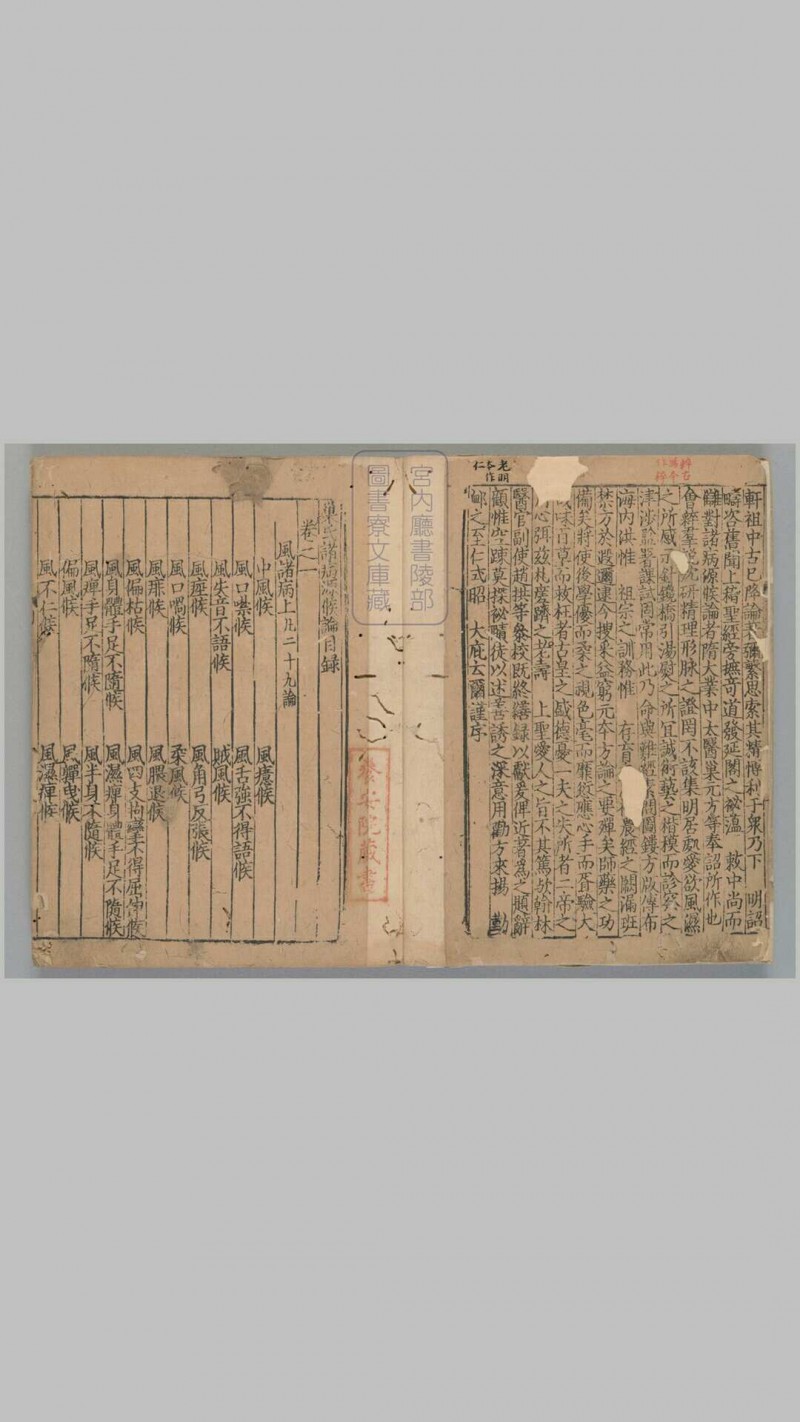 軒祖中古已降論不彌繁思索其精博利于衆乃下 明詔
疇咨舊聞上稽聖經旁摭竒道發延閣之祕蕰 敕中尚而
讎對諸病源候論者隋大業中太醫巢元方等奉詔所作也
會稡羣說沈研精理形脉之證罔不該集明居處愛欲風濕
之所感示針鑱橋引湯熨之所宜誠術藝之楷模而診察之
津涉監署課試固常用此乃命與難經素問圖鏤方版傳布
海内洪惟 祖宗之訓務惟 存育 農經之闕漏班
禁方於遐邇逮今搜采益窮元夲方論之要殫矣師藥之功
備矣將使後學優而柔之視色毫而靡愆應心手而胥驗大
味百草而救枉者古皇之盛德憂一夫之失所者二帝之
心弭兹札瘥躋之老壽 上聖愛人之旨不其篤欤翰林
醫官副使趙拱等叅校旣終繕録以獻爰俾近著爲之題辭
顧惟空疎莫探祕賾徒以述善誘之深意用勸方來揚 勤
䘏之至仁式昭 大庇云爾謹序
老本作
洞仁
宮内廳書陵部
圖書寮文庫藏
養安院藏書
巢氏諸病源候論目録
卷之一
風諸病上凡二十九論
中風候 風癔候
風口噤候 風舌強不得語候
風失音不語候 賊風候
風痙候 風角弓反張候
風口喎候 柔風候
風痱候 風腲退候
風偏枯候 風四支拘攣不得屈伸候
風身體手足不隨候 風濕痹身體手足不隨候
風痹手足不隨候 風半身不隨候
偏風候 風嚲曳候
風不仁候 風濕痹候